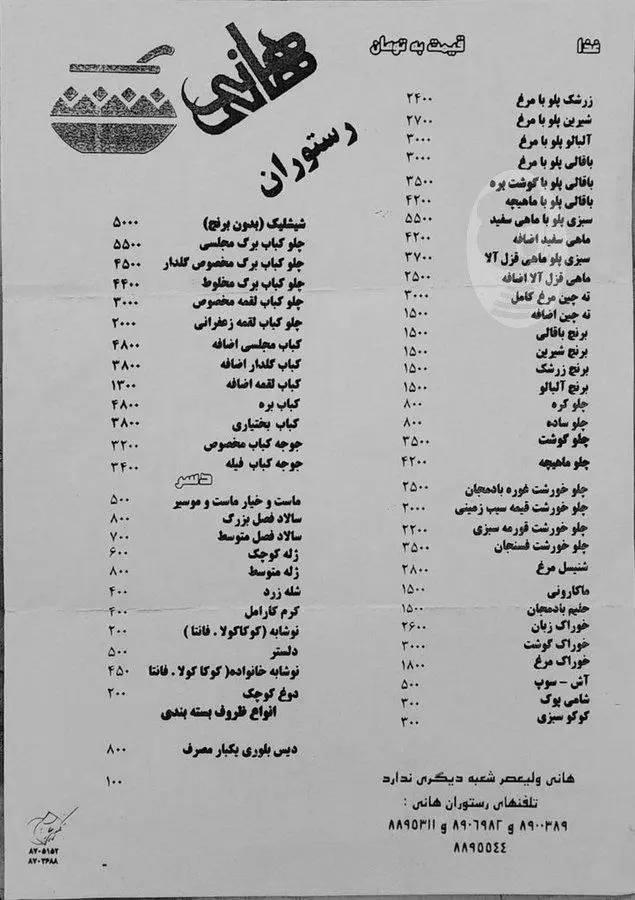 هانی
رستوران
غذا قیمت به تومان
زرشک پلو با مرغ ۲۴۰۰
شیرین پلو با مرغ ۲۷۰۰
آلبالو پلو با مرغ ۳۰۰۰
باقالی پلو با مرغ ۳۰۰۰
باقالی پلو با گوشت بره ۳۵۰۰
باقالی پلو با ماهیچه ۴۲۰۰
سبزی پلو با ماهی سفید ۵۵۰۰
ماهی سفید اضافه ۴۲۰۰
سبزی پلو ماهی قزل آلا ۳۷۰۰
ماهی قزل آلا اضافه ۲۵۰۰
ته چین مرغ کامل ۳۰۰۰
ته چین اضافه ۱۵۰۰
برنج باقالی ۱۵۰۰
برنج شیرین ۱۵۰۰
برنج زرشک ۱۵۰۰
برنج آلبالو ۱۵۰۰
چلو کره ۸۰۰
چلو ساده ۸۰۰
چلو گوشت ۳۵۰۰
چلو ماهیچه ۴۲۰۰
چلو خورشت غوره بادمجان ۲۵۰۰
چلو خورشت قیمه سیب زمینی ۲۰۰۰
چلو خورشت قورمه سبزی ۲۲۰۰
چلو خورشت فسنجان ۳۵۰۰
شنیسل مرغ ۲۸۰۰
ماکارونی ۱۵۰۰
حلیم بادمجان ۱۵۰۰
خوراک زبان ۲۶۰۰
خوراک گوشت ۳۰۰۰
خوراک مرغ ۱۸۰۰
آش - سوپ ۵۰۰
شامی پوک ۳۰۰
کوکو سبزی ۳۰۰
هانی ولیعصر شعبه دیگری ندارد
تلفنهای رستوران هانی :
۸۹۰۰۳۸۹ و ۸۹۰۶۹۸۲ و ۸۸۹۵۳۱۱
۸۸۹۵۵۴۴
شیشلیک (بدون برنج) ۵۰۰۰
چلو کباب برگ مجلسی ۵۵۰۰
چلو کباب برگ مخصوص گلدار ۴۵۰۰
چلو کباب برگ مخلوط ۴۴۰۰
چلو کباب لقمه مخصوص ۳۰۰۰
چلو کباب لقمه زعفرانی ۲۰۰۰
کباب مجلسی اضافه ۴۸۰۰
کباب گلدار اضافه ۳۸۰۰
کباب لقمه اضافه ۱۳۰۰
کباب بره ۴۸۰۰
کباب بختیاری ۳۸۰۰
جوجه کباب مخصوص ۳۲۰۰
جوجه کباب فیله ۳۴۰۰
دسر
ماست و خیار ماست و موسیر ۵۰۰
سالاد فصل بزرگ ۸۰۰
سالاد فصل متوسط ۷۰۰
ژله کوچک ۶۰۰
ژله متوسط ۸۰۰
شله زرد ۴۰۰
کرم کارامل ۴۰۰
نوشابه (کوکاکولا . فانتا ) ۲۰۰
دلستر ۵۰۰
نوشابه خانواده( کوکا کولا . فانتا ۴۵۰
دوغ کوچک ۲۰۰
انواع ظروف بسته بندی
دیس بلوری یکبار مصرف ۸۰۰
۱۰۰
۸۷۰۵۱۵۲
۸۷۰۲۶۸۸